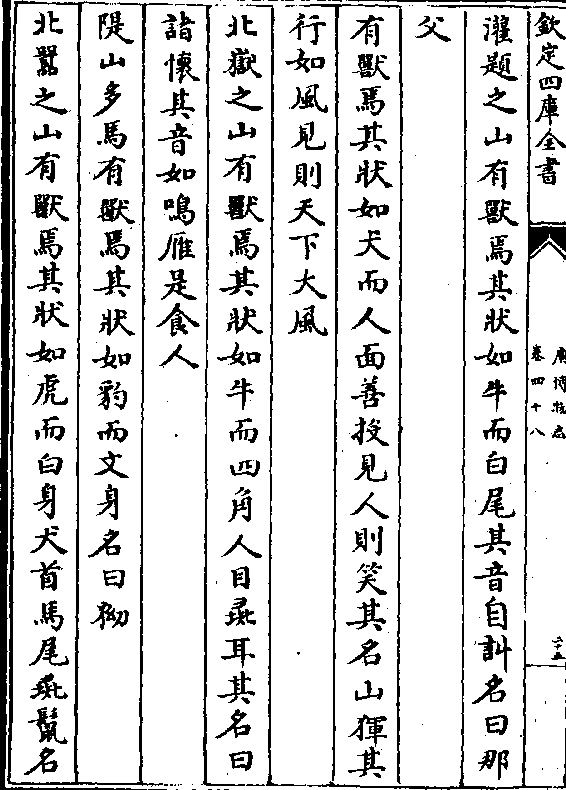 欽定四庫全書
廣博物志
卷四十八
二十五
灌題之山有獸焉其狀如牛而白尾其音自訆名曰那
父
有獸焉其狀如犬而人面善投見人則笑其名山𤟤其
行如風見則天下大風
北嶽之山有獸焉其狀如牛而四角人目彘耳其名曰
諸懷其音如鳴雁是食人
隄山多馬有獸焉其狀如豹而文身名曰狕
北嚻之山有獸焉其狀如虎而白身犬首馬尾彘鬛名